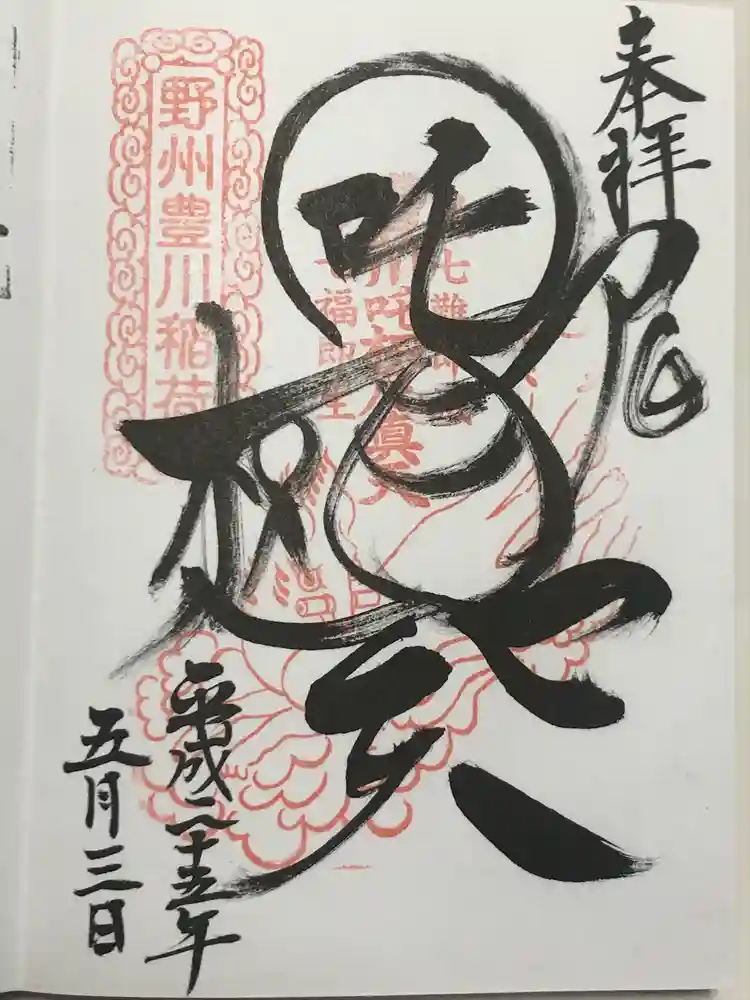 奉拝
吒枳尼天
七難即滅
川吒枳尼眞天
七福即生
野州豊川稲荷
平成二十五年
五月三日